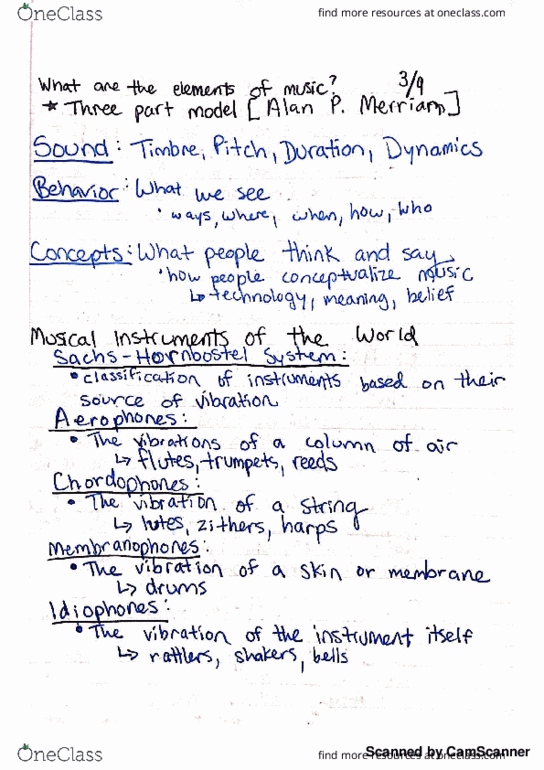 OneClass
find more resources at oneclass.com
What are the elements of music? 3/9
★ Three part model [Alan P. Merriam]
Sound: Timbre, Pitch, Duration, Dynamics
Behavior: What we see
• ways, where, when, how, who
Concepts: What people think and say
• how people conceptualize music
↳ technology, meaning, belief
Musical Instruments of the World
Sachs-Hornbostel System:
• classification of instruments based on their
source of vibration
Aerophones:
• The vibrations of a column of air
↳ flutes, trumpets, reeds
Chordophones:
• The vibration of a string
↳ lutes, zithers, harps
Membranophones:
• The vibration of a skin or membrane
↳ drums
Idiophones:
• The vibration of the instrument itself
↳ rattlers, shakers, bells
OneClass
find more resources at oneclass.com
Scanned by CamScanner